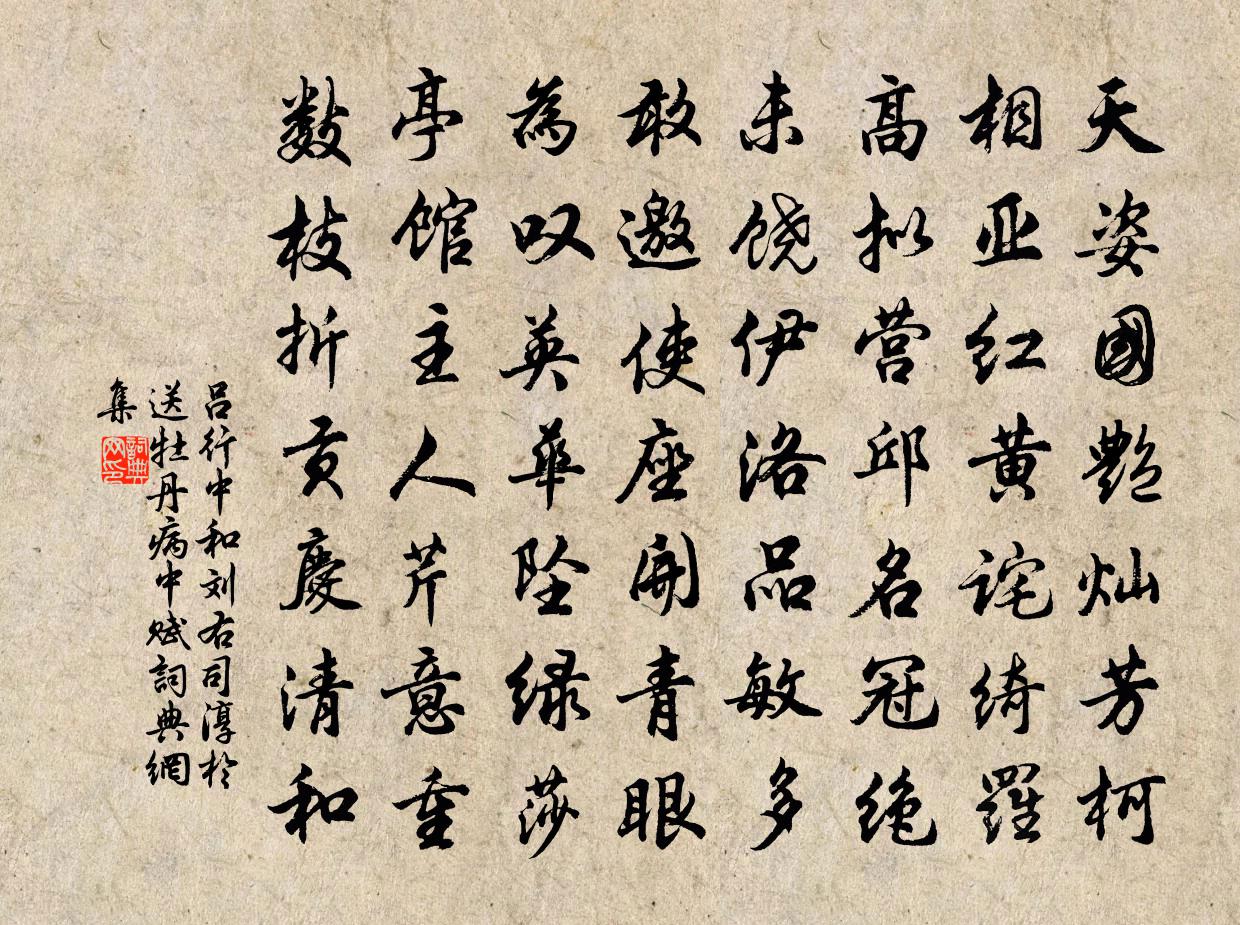 天姿國艷灿芳柯
相亚红黄诧绮羅
高拟营邱名冠绝
未饶伊洛品敏多
敢邀使座開青眼
為叹英華坠绿莎
亭馆主人芹意重
数枝折贡慶清和
吕行中和刘右司淳於
送牡丹病中赋詞典網
集
詞典网印